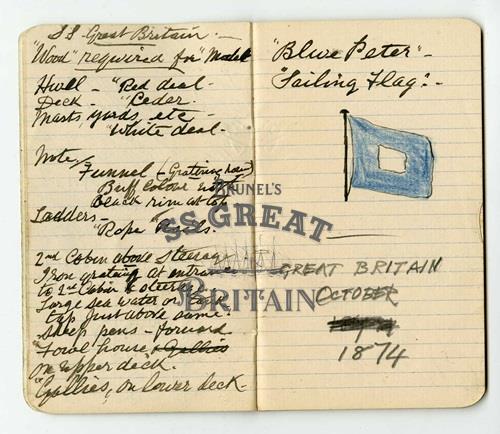 SS Great Britain.
"Wood" required for "Model
Hull - "Red deal.
Deck - "Ceder.
Masts, yards, etc
"White deal.
Note/
Funnel (Gratering hole)
Buff colour
Black rim at top
Ladders -
"Rope
2nd Cabin above Steerage
Iron grating at entrance
to 2nd Cabin
Large sea water
tap just above same.
Sheep pens - forward
"Fowl house & Gallies
on upper deck.
"Gallies, on lower deck.
"Blue Peter" -
"Sailing Flag". -
GREAT BRITAIN
OCTOBER
1874
BRUNEL'S
SS GREAT
BRITAIN